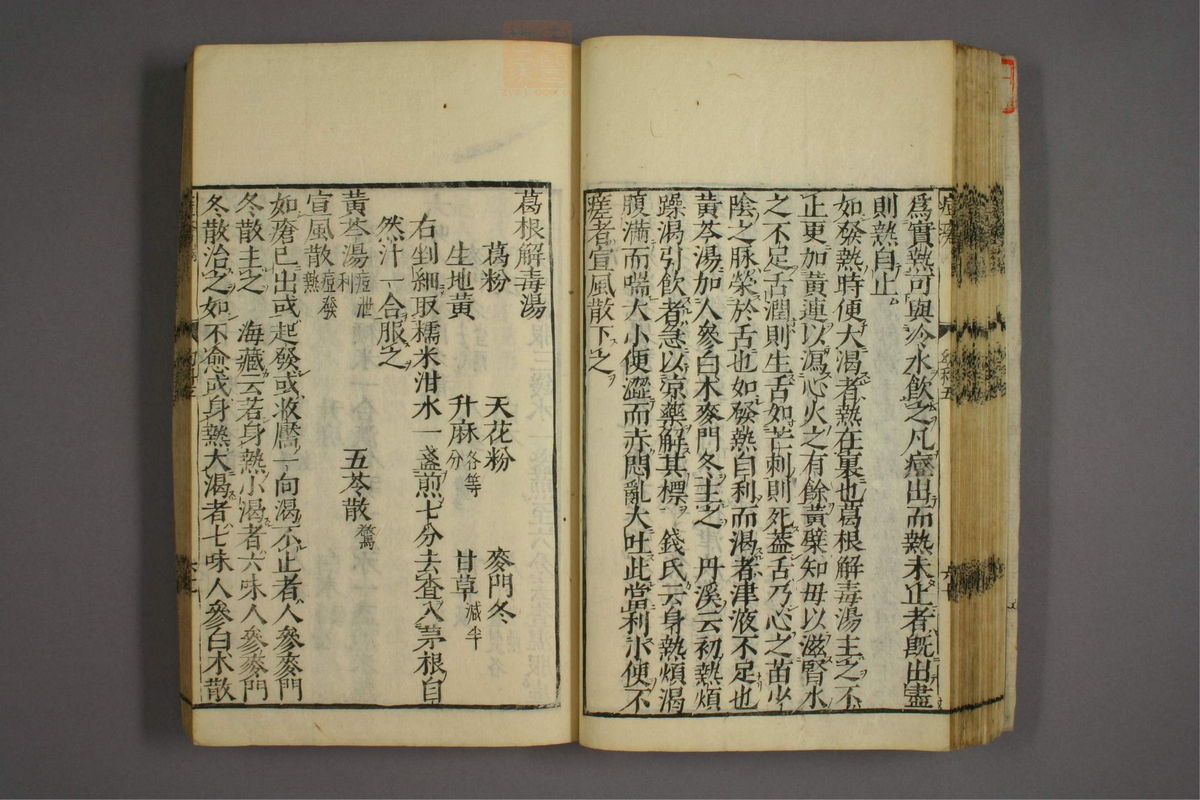 爲實熱可與冷水飲之凡瘡出而熱未止者既出盡
則熱自止
如發熱時便大渴者熱在裏也葛根解毒湯主之不
止更加黃連以瀉心火之有餘黃蘗知毋以滋腎水
之不足舌潤則生舌如芒刺則死葢舌乃心之苗少
陰之脉縈於舌也如發熱自利而渴者津液不足也
黃芩湯加人參白术麥門冬主之 丹溪云初熱煩
躁渴引飲者急以凉藥解其標 錢氏云身熱煩渴
腹滿而喘大小便澀而赤悶亂大吐此當利小便不
瘥者宣風散下之
葛根解毒湯
葛粉 天花粉 麥門冬
生地黃 升麻各等分 甘草減半
右剉細取糯米泔水一盞煎七分去查入茅根自
然汁一合服之
黃芩湯痘泄利 五苓散
宣風散痘發熱
如瘡已出或起發或收靨一向渴不止者人參麥門
冬散主之 海藏云若身熱小渴者六味人參麥門
冬散治之如不愈或身熱大渴者七味人參白术散